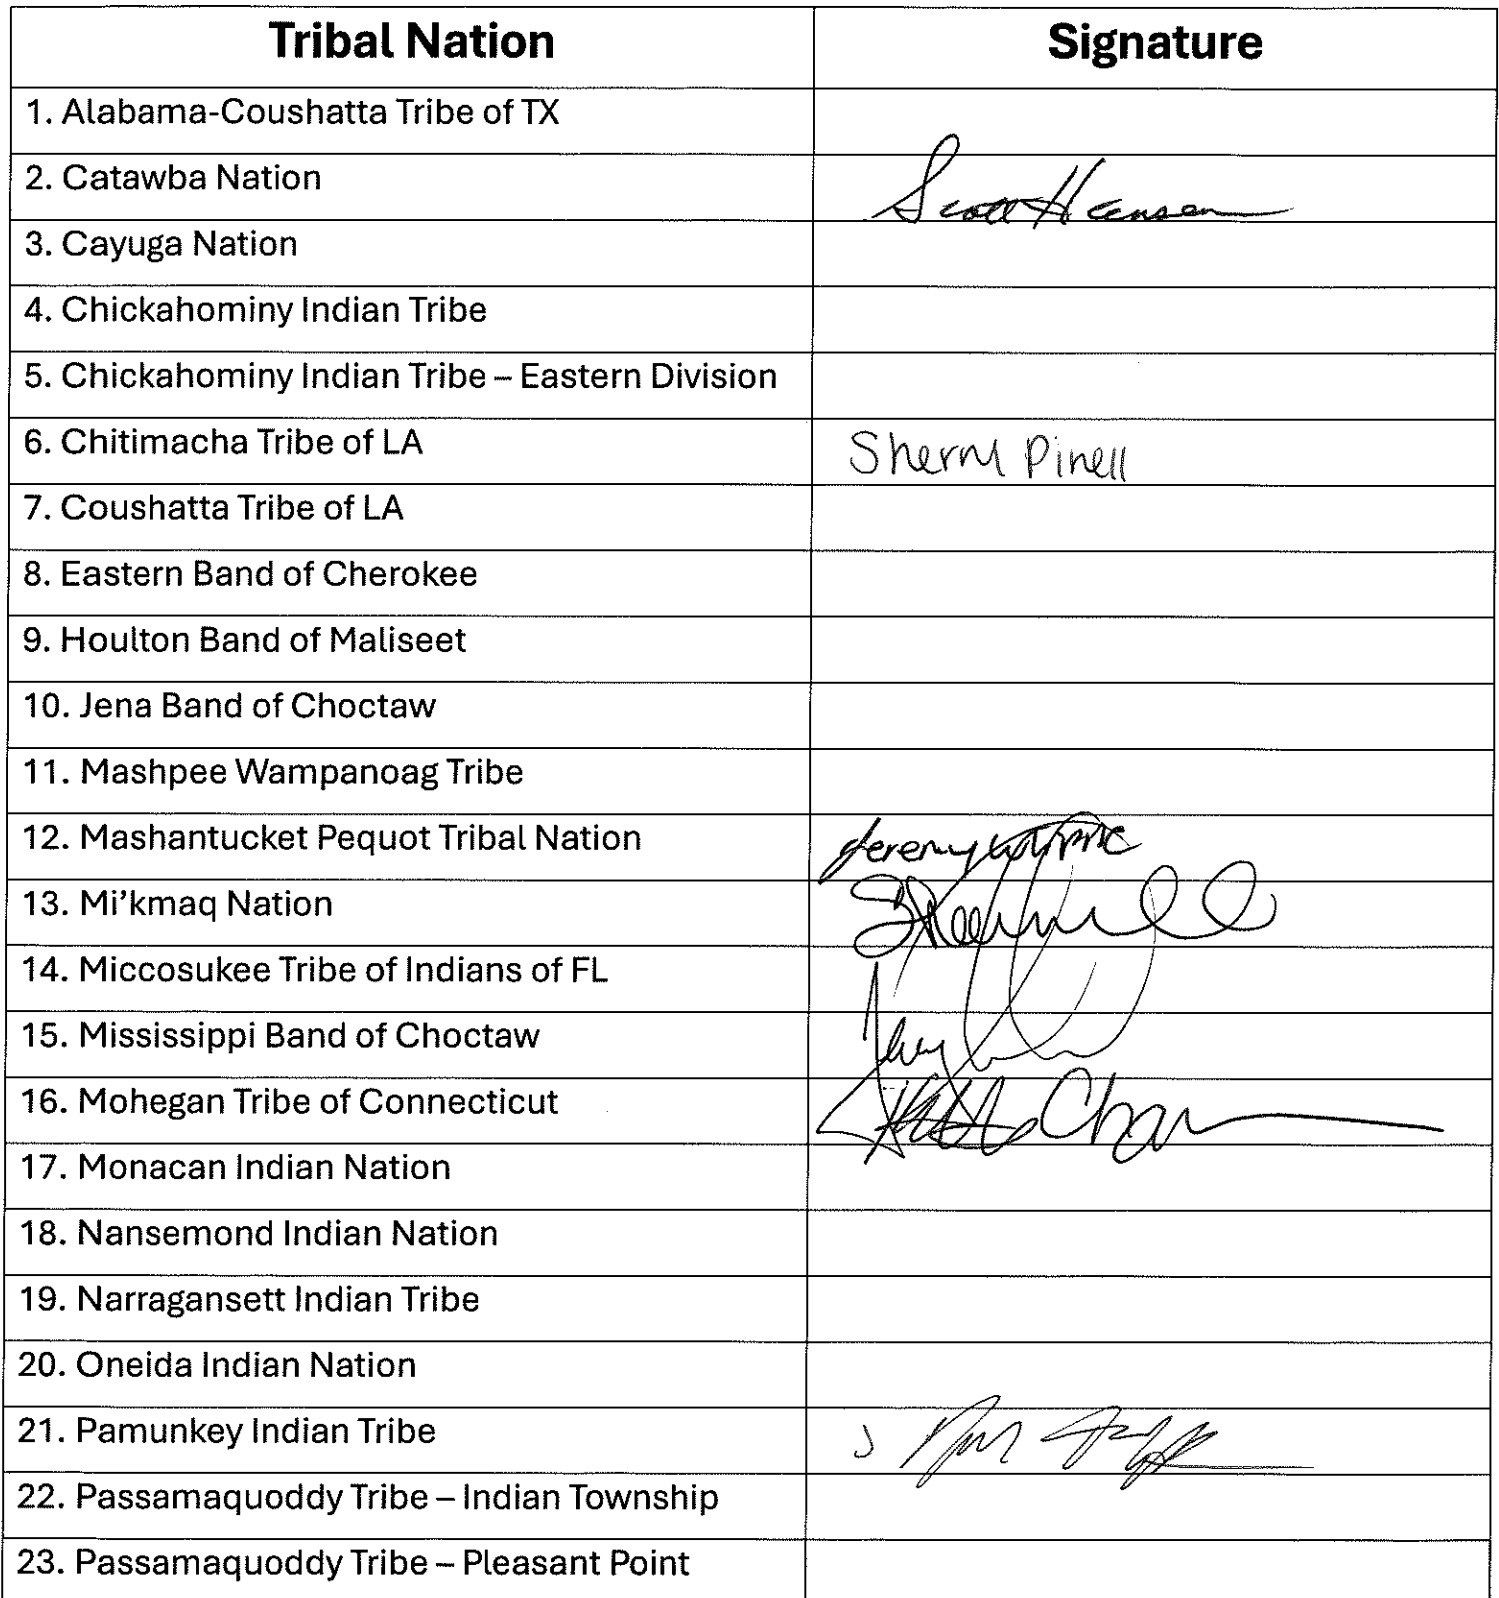 Tribal Nation Signature
1. Alabama-Coushatta Tribe of TX
2. Catawba Nation Scott Hansen
3. Cayuga Nation
4. Chickahominy Indian Tribe
5. Chickahominy Indian Tribe – Eastern Division
6. Chitimacha Tribe of LA Sherry Pinell
7. Coushatta Tribe of LA
8. Eastern Band of Cherokee
9. Houlton Band of Maliseet
10. Jena Band of Choctaw
11. Mashpee Wampanoag Tribe
12. Mashantucket Pequot Tribal Nation Jeremy
13. Mi’kmaq Nation
14. Miccosukee Tribe of Indians of FL
15. Mississippi Band of Choctaw
16. Mohegan Tribe of Connecticut
17. Monacan Indian Nation
18. Nansemond Indian Nation
19. Narragansett Indian Tribe
20. Oneida Indian Nation
21. Pamunkey Indian Tribe
22. Passamaquoddy Tribe – Indian Township
23. Passamaquoddy Tribe – Pleasant Point